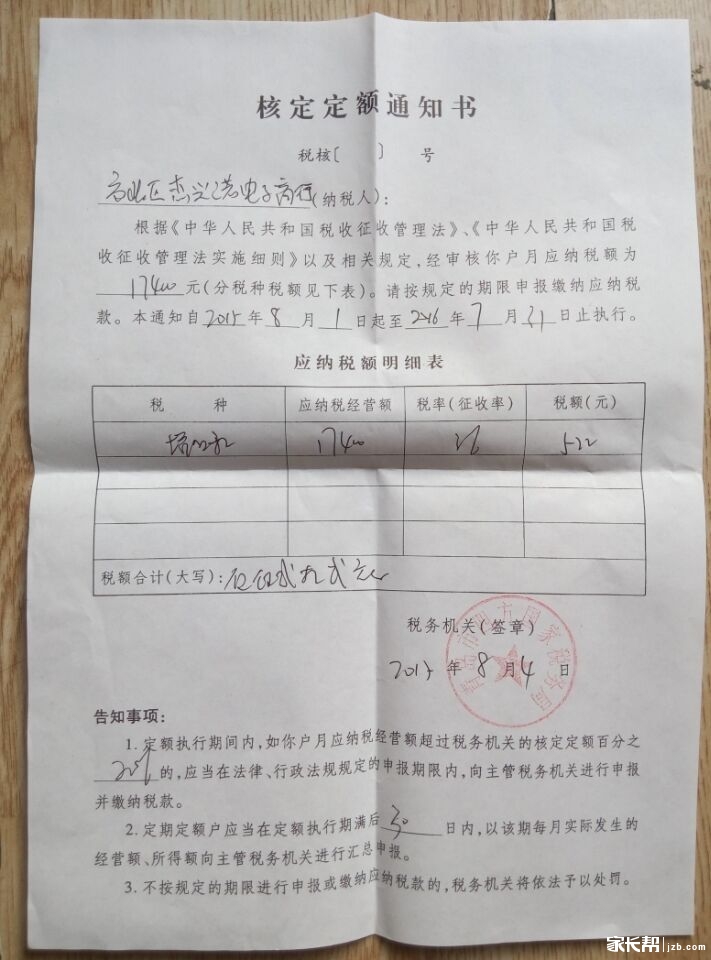 核定定额通知书
税核〔 〕 号
市北区杰兴诺电子商行(纳税人):
根据《中华人民共和国税收征收管理法》、《中华人民共和国税
收征收管理法实施细则》以及相关规定,经审核你户月应纳税额为
17400元(分税种税额见下表)。请按规定的期限申报缴纳应纳税
款。本通知自2015年8月1日起至2016年7月31日止执行。
应纳税额明细表
税 种 应纳税经营额 税率(征收率) 税额(元)
增值税 17400 3% 522
税额合计(大写):伍佰贰拾贰元
税务机关(签章)
2015年8月4日
青岛市四方国家税务局
告知事项:
1.定额执行期间内,如你户月应纳税经营额超过税务机关的核定定额百分之
20%的,应当在法律、行政法规规定的申报期限内,向主管税务机关进行申报
并缴纳税款。
2.定期定额户应当在定额执行期满后30日内,以该期每月实际发生的
经营额、所得额向主管税务机关进行汇总申报。
3.不按规定的期限进行申报或缴纳应纳税款的,税务机关将依法予以处罚。
家长帮 jzb.com